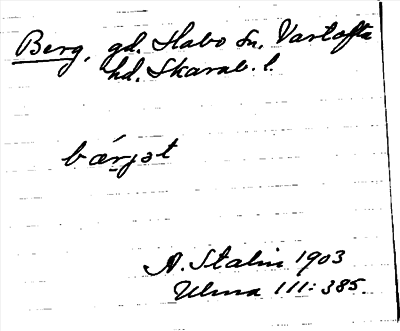 Berg, gd. Habo sn. Vartofta
hd. Skarab. l.
bærjət
A. Stalin 1903
Ulma 111:385.